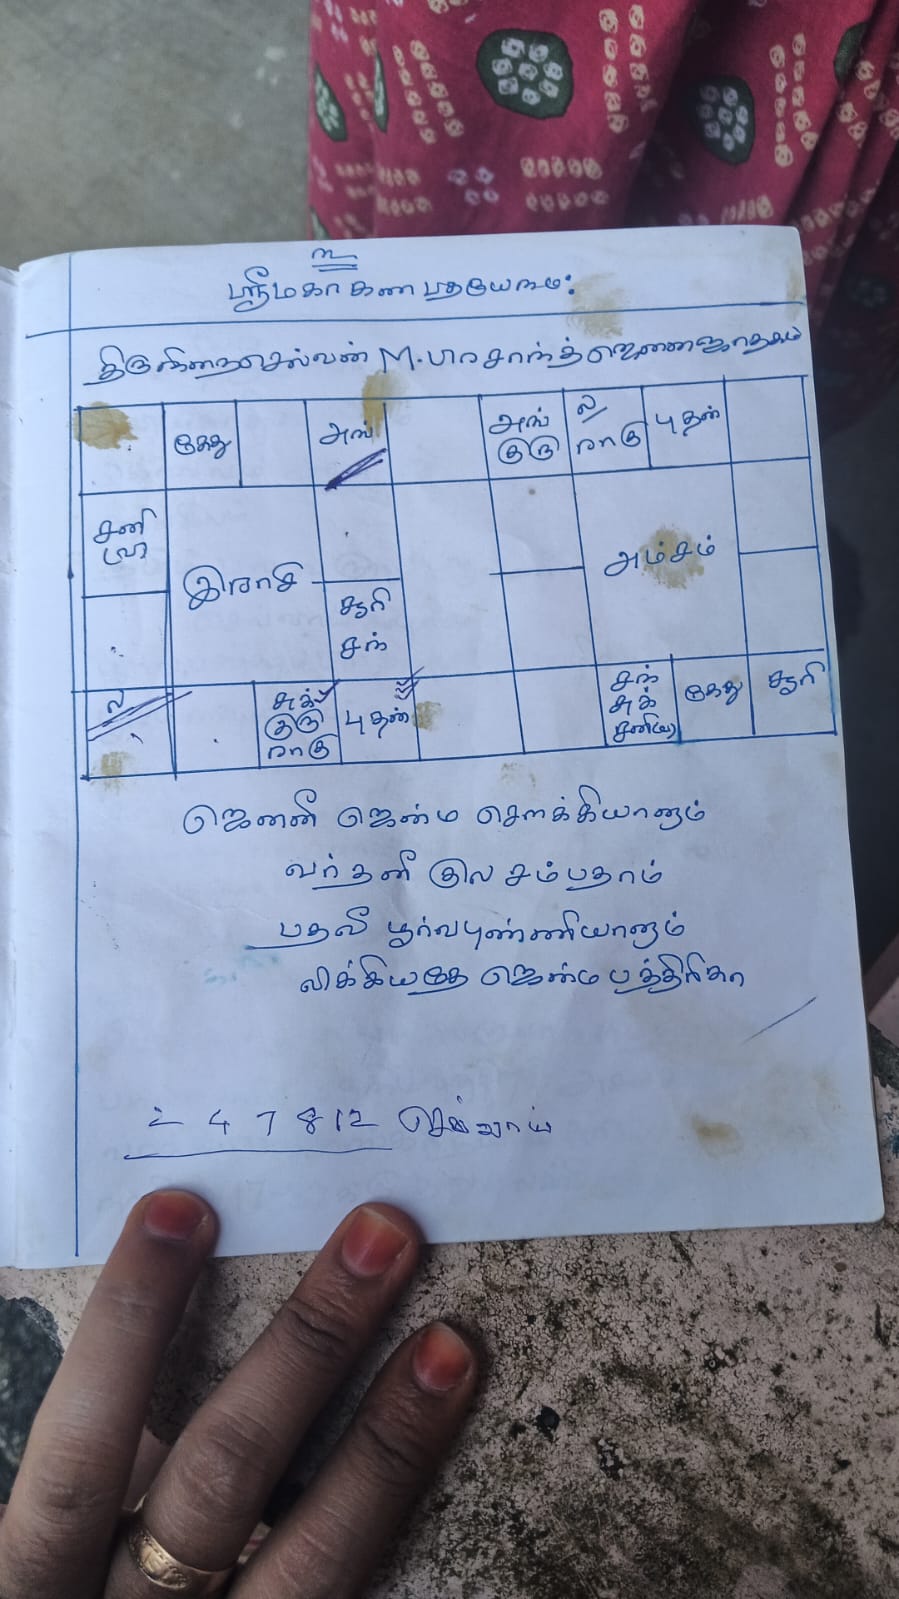 உ
ஸ்ரீமகா கணபதயேநம:
திருநிறைசெல்வன் M. பரசாந்த் ஜெனனஜாதகம்
கேது அங்
அங் குரு
ல/ ராகு
புதன்
சனி
இராசி
சூரி சந்
அம்சம்
ல
சுக் குரு ராகு
புதன்
சந் சுக் சனி
கேது
சூரி
ஜெனனீ ஜென்ம சௌக்கியானாம்
வர்தனீ குல சம்பதாம்
பதவீ பூர்வபுண்ணியானாம்
லிக்கியதே ஜென்ம பத்திரிகா
2 4 7 8 12 செவ்வாய்